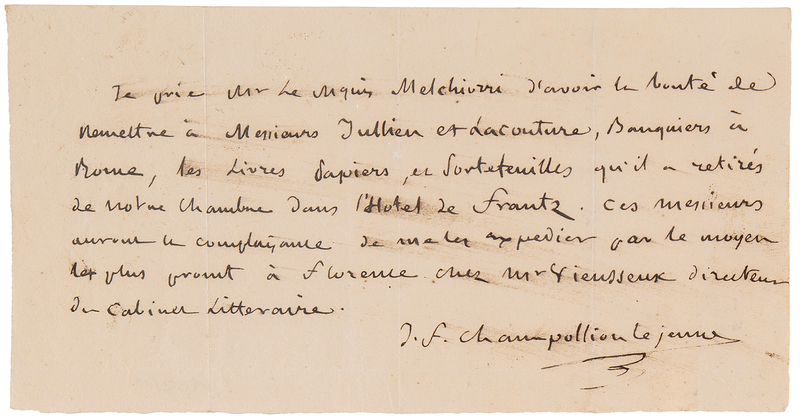 Je prie Mr Le Mquis Melchiorri d'avoir la bonté de
Remettre à Messieurs Jullien et Lacouture, Banquiers à
Rome, les Livres Papiers, et Portefeuilles qu'il a retirés
de notre chambre dans l'Hotel de Frantz. Ces messieurs
auront la complaisance de me les expedier par le moyen
le plus promt à Florence chez Mr Vieusseux directeur
du Cabinet Litteraire.
J. F. Champollion le jeune